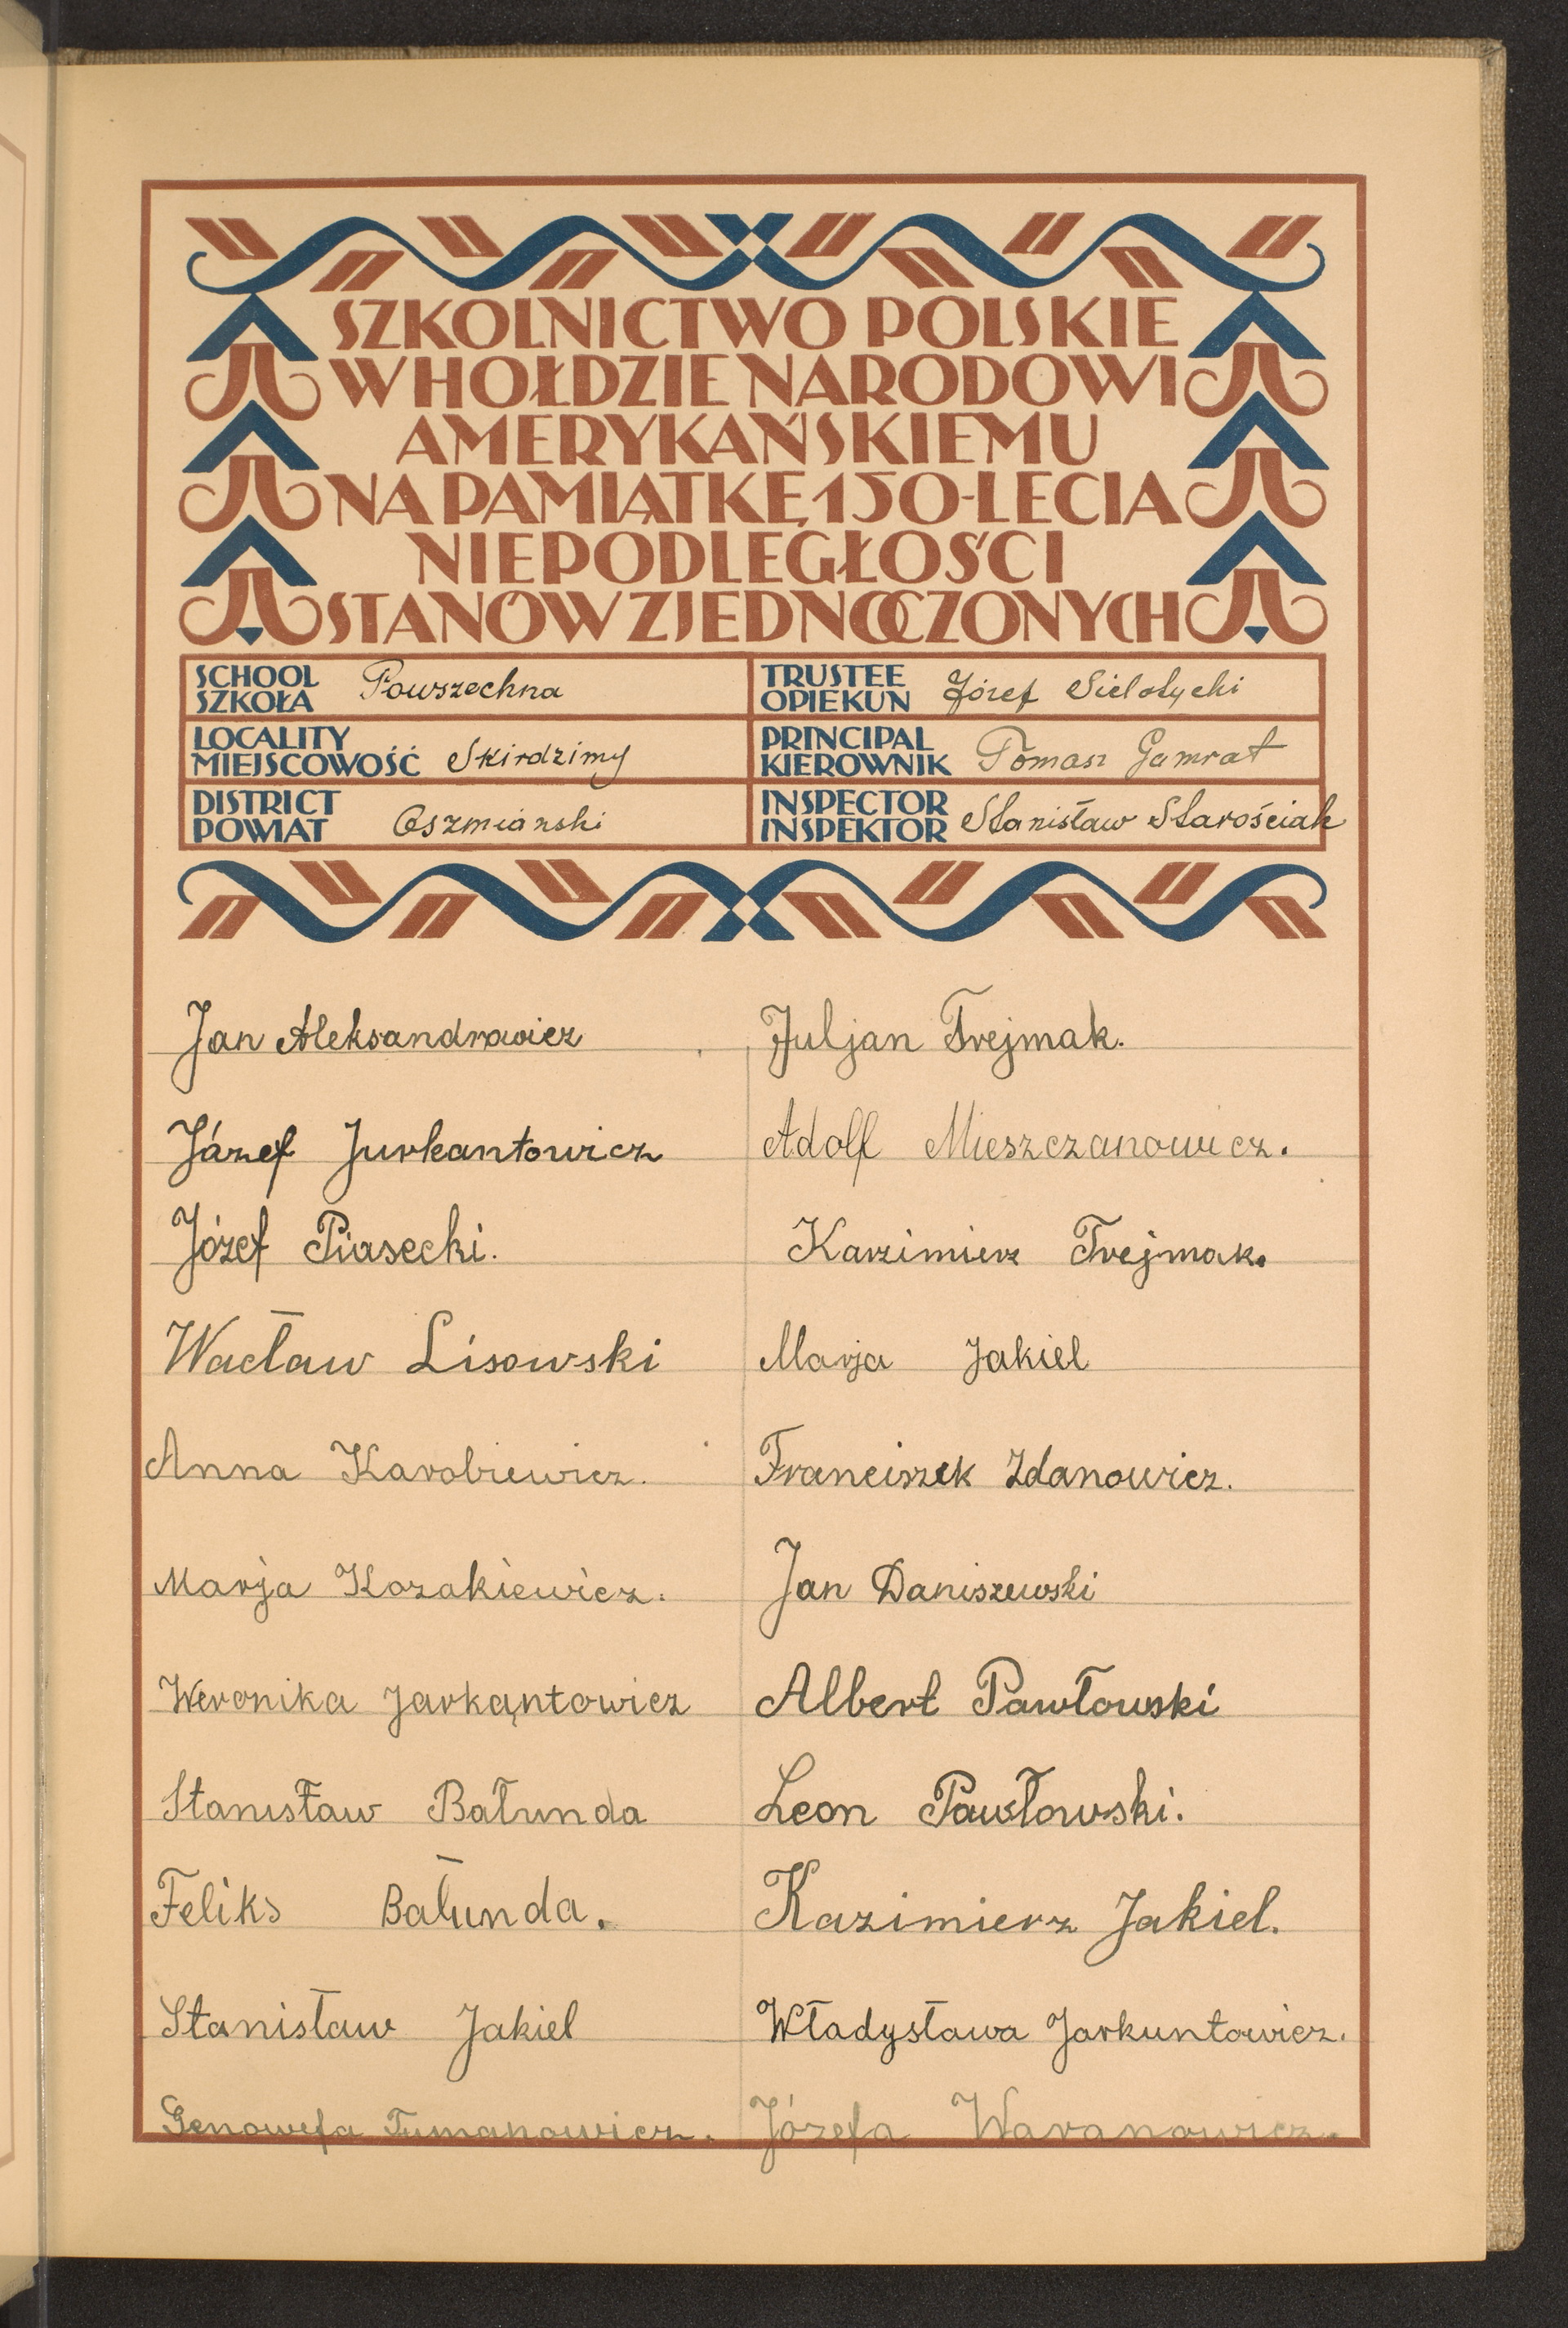 SZKOLNICTWO POLSKIE
W HOŁDZIE NARODOWI
AMERYKAŃSKIEMU
NA PAMIĄTKĘ 150-LECIA
NIEPODLEGŁOŚCI
STANÓW ZJEDNOCZONYCH
SCHOOL
SZKOŁA Powszechna
TRUSTEE
OPIEKUN Józef
LOCALITY
MIEJSCOWOŚĆ Skirdzimy
PRINCIPAL
KIEROWNIK Tomasz Gamrat
DISTRICT
POWIAT Oszmiański
INSPECTOR
INSPEKTOR Stanisław Starościak
Jan Aleksandrowicz
Juljan Trejmak.
Józef Jurkantowicz
Adolf Mieszczanowicz.
Józef Piasecki.
Karzimierz Trejmak.
Wacław Lisowski
Marja Jakiel
Anna Karobiewicz.
Franciszek Zdanowicz.
Marja Kozakiewicz.
Jan Daniszewski
Weronika Jarkąntowicz
Albert Pawłowski
Stanisław Bałunda
Leon Pawłowski.
Feliks Bałunda.
Kazimierz Jakiel.
Stanisław Jakiel
Władysława Jarkuntowicz.
Genowefa Tumanowicz.
Józefa Waranowicz.